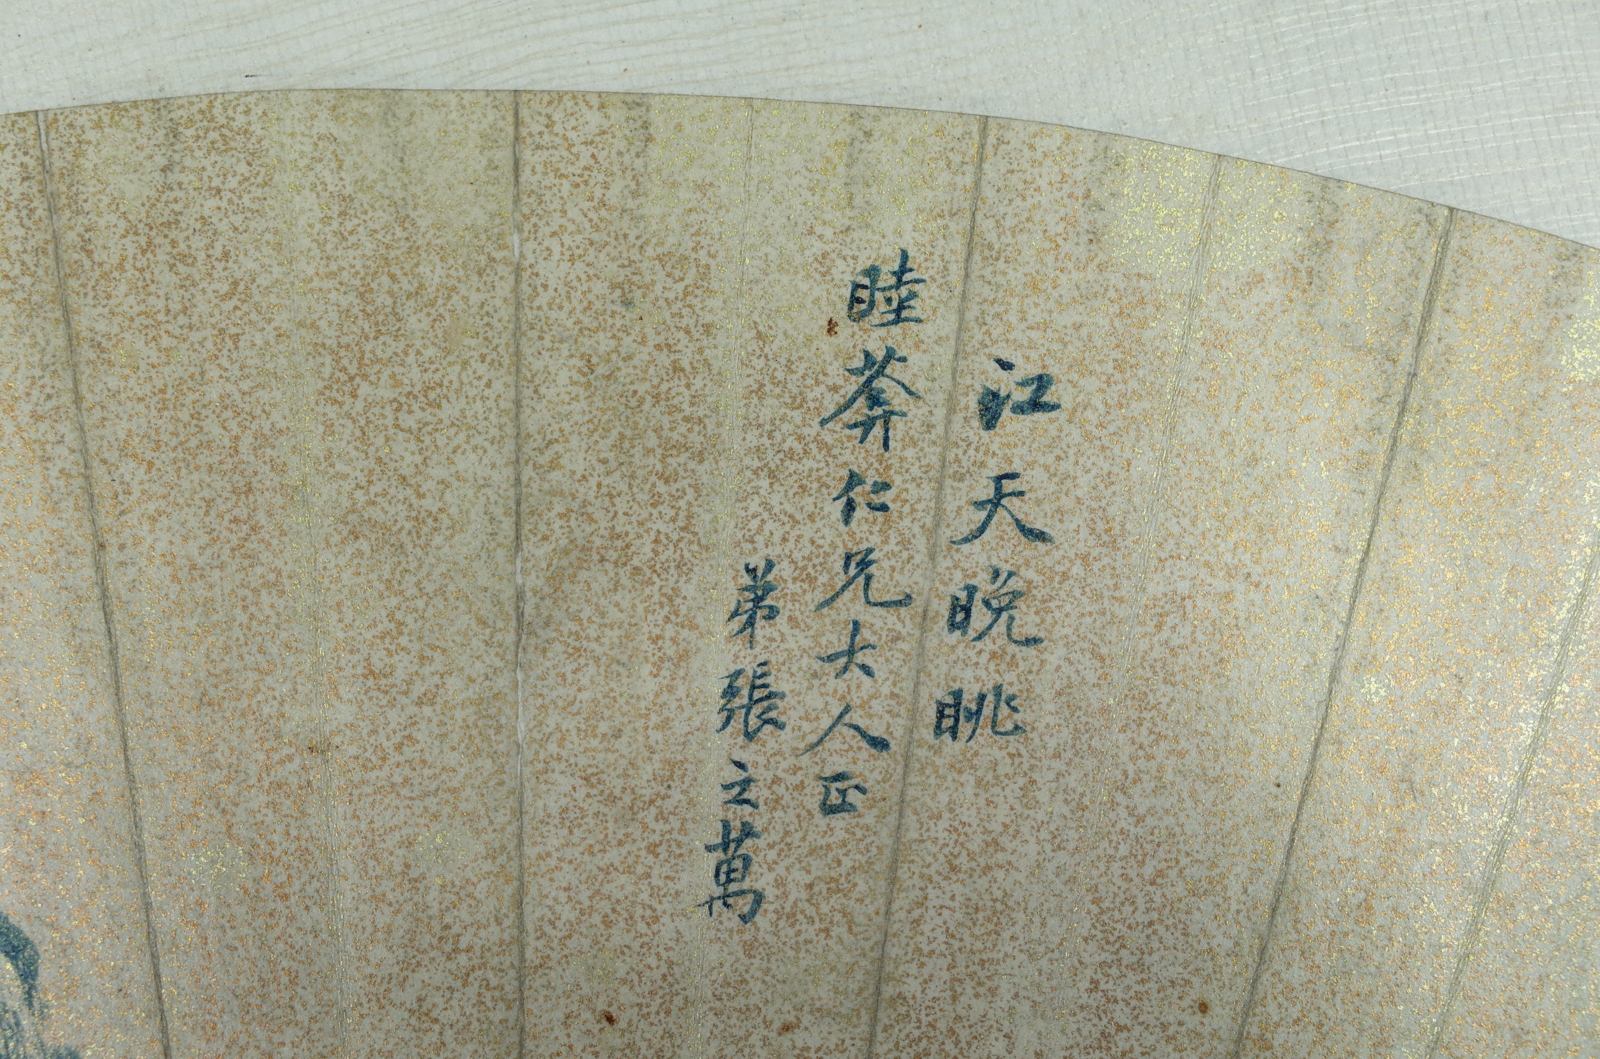 江天晚眺
睦莽仁兄大人正
弟張之萬